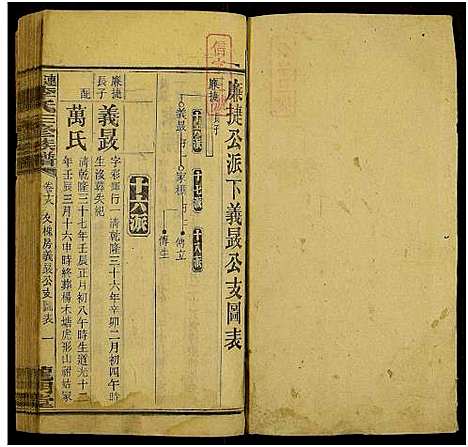 廉捷公派下義晸公支圖表
廉捷長子
十六派
十七派
十八派
義晸
家樟
傳立
傳生
十六派
廉捷長子
義晸
字彩輝行一清乾隆三十六年辛卯二月初四午時
生沒葬失紀
配
萬氏
清乾隆三十七年壬辰正月初八午時生道光十二
年壬辰三月十六申時終葬楊木塘虎形山祔姑冢
氏三修族譜
卷十六 友棟房義晸公支圖表 一